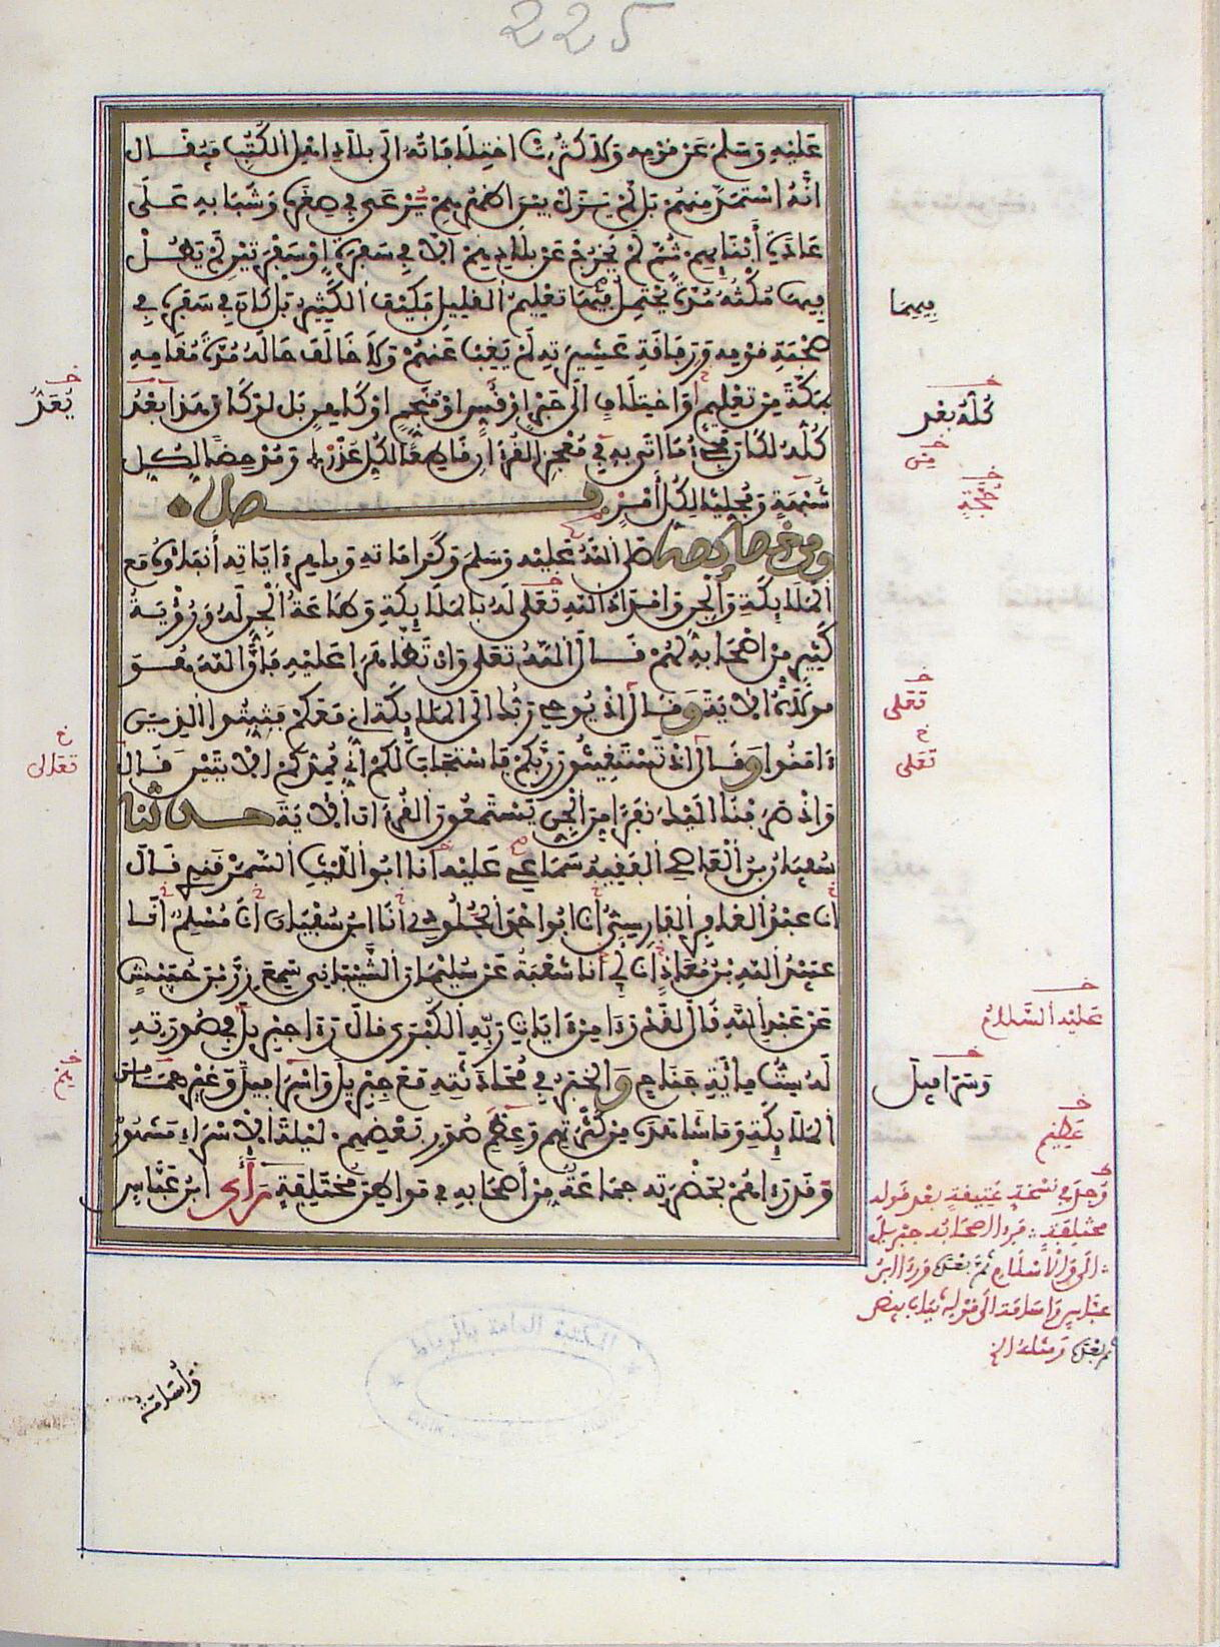 225
عَلَيْهِ وَسَلَّمَ عَنْ قَوْمِهِ وَلَا كَثُرَتْ اخْتِلَافَاتُهُ إِلَى بِلَادِ أَهْلِ الْكُتُبِ فَيُقَالُ
أَنَّهُ اسْتَمَدَّ مِنْهُمْ بَلْ لَمْ يَزَلْ بَيْنَ أَظْهُرِهِمْ يَرْعَى فِي صِغَرِهِ وَشَبَابِهِ عَلَى
عَادَةِ أَبْنَائِهِمْ ثُمَّ لَمْ يَخْرُجْ عَنْ بِلَادِهِمْ إِلَّا فِي سَفْرَةٍ أَوْ سَفْرَتَيْنِ لَمْ يَطُلْ
فِيهَا مُكْثُهُ مُدَّةً يُحْتَمَلُ فِيهَا تَعْلِيمُ الْقَلِيلِ فَكَيْفَ الْكَثِيرُ بَلْ كَانَ فِي سَفَرِهِ فِي
صُحْبَةِ قَوْمِهِ وَرَفَاقَةِ عَشِيرَتِهِ لَمْ يَغِبْ عَنْهُمْ وَلَا خَالَفَ حَالُهُ مُدَّةَ مُقَامِهِ
بِمَكَّةَ مِنْ تَعْلِيمٍ وَاخْتِلَافٍ إِلَى حَبْرٍ أَوْ قَسٍّ أَوْ مُنَجِّمٍ أَوْ كَاهِنٍ بَلْ لَوْ كَانَ هَذَا بَعْدُ
كُلُّهُ لَكَانَ مَجِيءُ مَا أَتَى بِهِ فِي مُعْجِزِ الْقُرْءَانِ قَاطِعًا لِكُلِّ عُذْرٍ وَمُدْحِضًا لِكُلِّ
شُبْهَةٍ وَمُجَلِّيًا لِكُلِّ أَمْرٍ فصل
ومن خصائصه صَلَّى اللهُ عَلَيْهِ وَسَلَّمَ وَكَرَامَاتِهِ وَبَاهِرِ ءَايَاتِهِ أَنْبَاؤُهُ مَعَ
الْمَلَائِكَةِ وَالْجِنِّ وَإِمْدَادُ اللهِ تَعَلَى لَهُ بِالْمَلَائِكَةِ وَطَاعَةُ الْجِنِّ لَهُ وَرُؤْيَةُ
كَثِيرٍ مِنْ أَصْحَابِهِ لَهُمْ قَالَ اللهُ تَعَلَى وَإِنْ تَظَاهَرَا عَلَيْهِ فَإِنَّ اللهَ هُوَ
مَوْلَاهُ الْآيَةَ وَقَالَ إِذْ يُوحِي رَبُّكَ إِلَى الْمَلَائِكَةِ أَنِّي مَعَكُمْ فَثَبِّتُوا الَّذِينَ
ءَامَنُوا وَقَالَ إِذْ تَسْتَغِيثُونَ رَبَّكُمْ فَاسْتَجَابَ لَكُمْ أَنِّي مُمِدُّكُمْ الْآيَتَيْنِ قَالَ
وَإِذْ صَرَفْنَا إِلَيْكَ نَفَرًا مِنَ الْجِنِّ يَسْتَمِعُونَ الْقُرْءَانَ الْآيَةَ حدثنا
سُفْيَانُ بْنُ الْعَاصِي الْفَقِيهُ سَمَاعِي عَلَيْهِ أَنَا أَبُو اللَّيْثِ السَّمَرْقَنْدِي قَالَ
أَنَا عَبْدُ الْغَافِرِ الْفَارِسِيُّ أَنَا أَبُو أَحْمَدَ الْجُلُودِي أَنَا ابْنُ سُفْيَانَ أَنَا مُسْلِمٌ أَنَا
عُبَيْدُ اللهِ بْنُ مُعَاذٍ أَنَا أَبِي أَنَا شُعْبَةُ عَنْ سُلَيْمَانَ الشَّيْبَانِي سَمِعَ زِرَّ بْنَ حُبَيْشٍ
عَنْ عَبْدِ اللهِ قَالَ لَقَدْ رَءَا مِنْ ءَايَاتِ رَبِّهِ الْكُبْرَى قَالَ رَءَا جِبْرِيلَ فِي صُورَتِهِ
لَهُ سِتُّ مِائَةِ جَنَاحٍ وَالْخَبَرُ فِي مُحَادَثَتِهِ مَعَ جِبْرِيلَ وَإِسْرَافِيلَ وَغَيْرِهِمَا مِنَ
الْمَلَائِكَةِ وَمَا شَاهَدَهُ مِنْ كَثْرَتِهِمْ وَعِظَمِ صُوَرِ بَعْضِهِمْ لَيْلَةَ الْإِسْرَاءِ مَشْهُورٌ
وَقَدْ رَءَاهُمْ بِحَضْرَتِهِ جَمَاعَةٌ مِنْ أَصْحَابِهِ فِي مَوَاطِنَ مُخْتَلِفَةٍ رَأَى ابْنُ عَبَّاسٍ
فِيهِمَا
كُلُّهُ بَعْد
تَعَلَى
تَعَلَى
عَلَيْهِ السَّلَامُ
وَسَرَافِيلَ
عَظِيمِ
وَجِدَ فِي نُسْخَةٍ عَتِيقَةٍ بَعْدَ قَوْلِهِ
مختلفة فرءا أصحابه جبريل
الى والاسلام ثم بعده ورءا ابن
عباس واسامة الى قوله ثياب بيض
ثم بعده ومثله الخ
بَعْدُ
تعالى
وَأُسَامَةُ